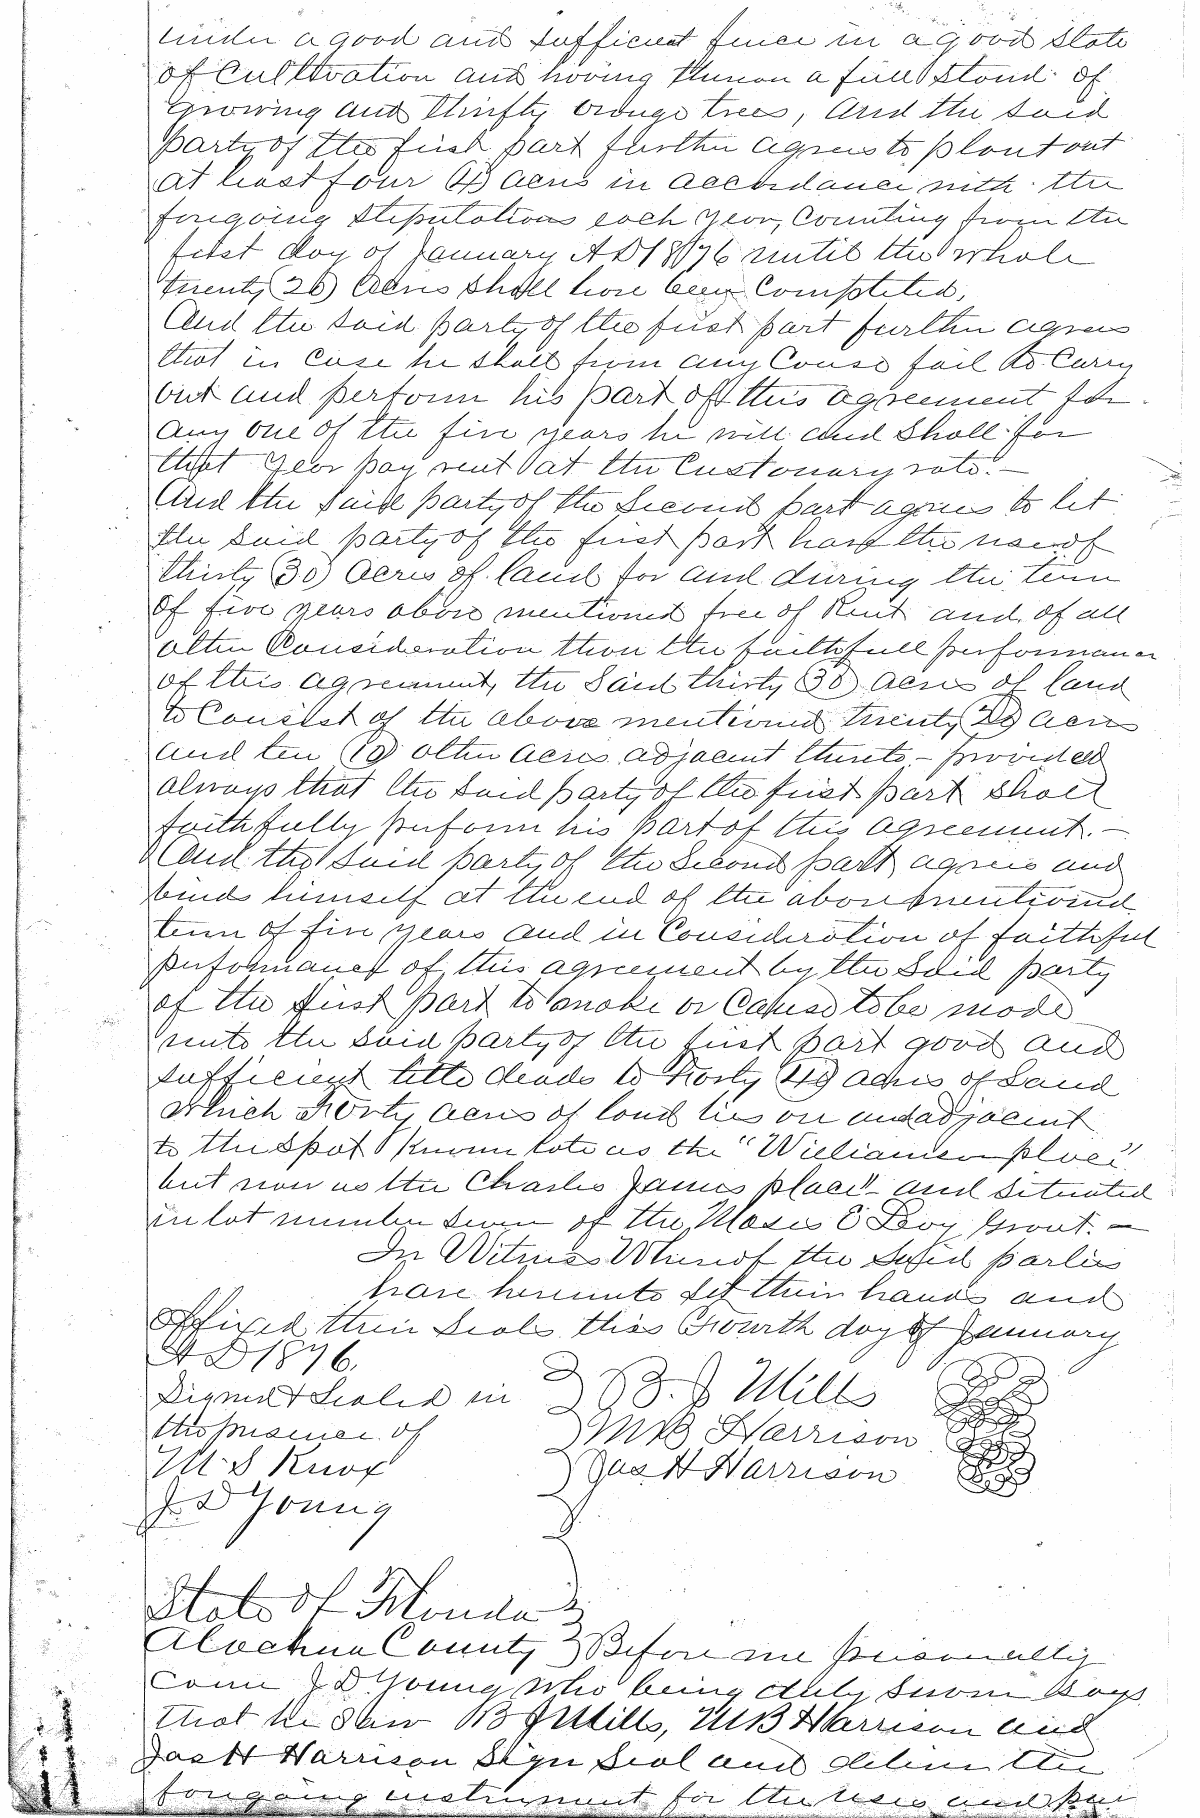 under a good and sufficient fence in a good state
of Cultivation and having thereon a full Stand of
Growing and thrifty orange trees, And the said
party of the first part further agrees to plant out
at least four (4) acres in accordance with the
foregoing stipulations each year, Counting from the
first day of January A D 1876 until the whole
twenty (20) acres shall have been Completed,
And the said party of the first part further agrees
that in case he shall from any Cause fail to Carry
out and perform his part of this agreement for
any one of the five years he will and shall for
that year pay rent at the Customary rate. —
And the said party of the Second part agrees to let
the said party of the first part have the use of
thirty (30) acres of land for and during the term
of five years above mentioned free of Rent and of all
other Consideration than the faithfull performance
of this agreement, the Said thirty (30) acres of land
to Consist of the above mentioned twenty (20) acres
and ten (10) other acres adjacent thereto, – provided
always that the said party of the first part shall
faithfully perform his part of this agreement. —
And the said party of the Second part agrees and
binds himself at the end of the above mentioned
term of five years and in Consideration of faithful
performance of this agreement by the Said party
of the first part to make or Cause to be made
unto the said party of the first part good and
sufficient title deeds to Forty (40) acres of Land
which Forty acres of land lies on and adjacent
to the spot known late as the "Williamson place"
but now as the Charles James place" and situated
in lot number seven of the Moses E Levy Grant. —
In Witness Whereof the Said parties
have hereunto set their hands and
affixed their Seals this Fourth day of January
A D 1876.
Signed & Sealed in
the presence of
M. S Knox
J. D Young
B. J Mills
M B Harrison
Jas H Harrison
State of Florida
Alachua County } Before me personally
Came J D Young who being duly sworn Says
that he Saw B J Mills, M B Harrison and
Jas H Harrison Sign Seal and deliver the
foregoing instrument for the uses and pur